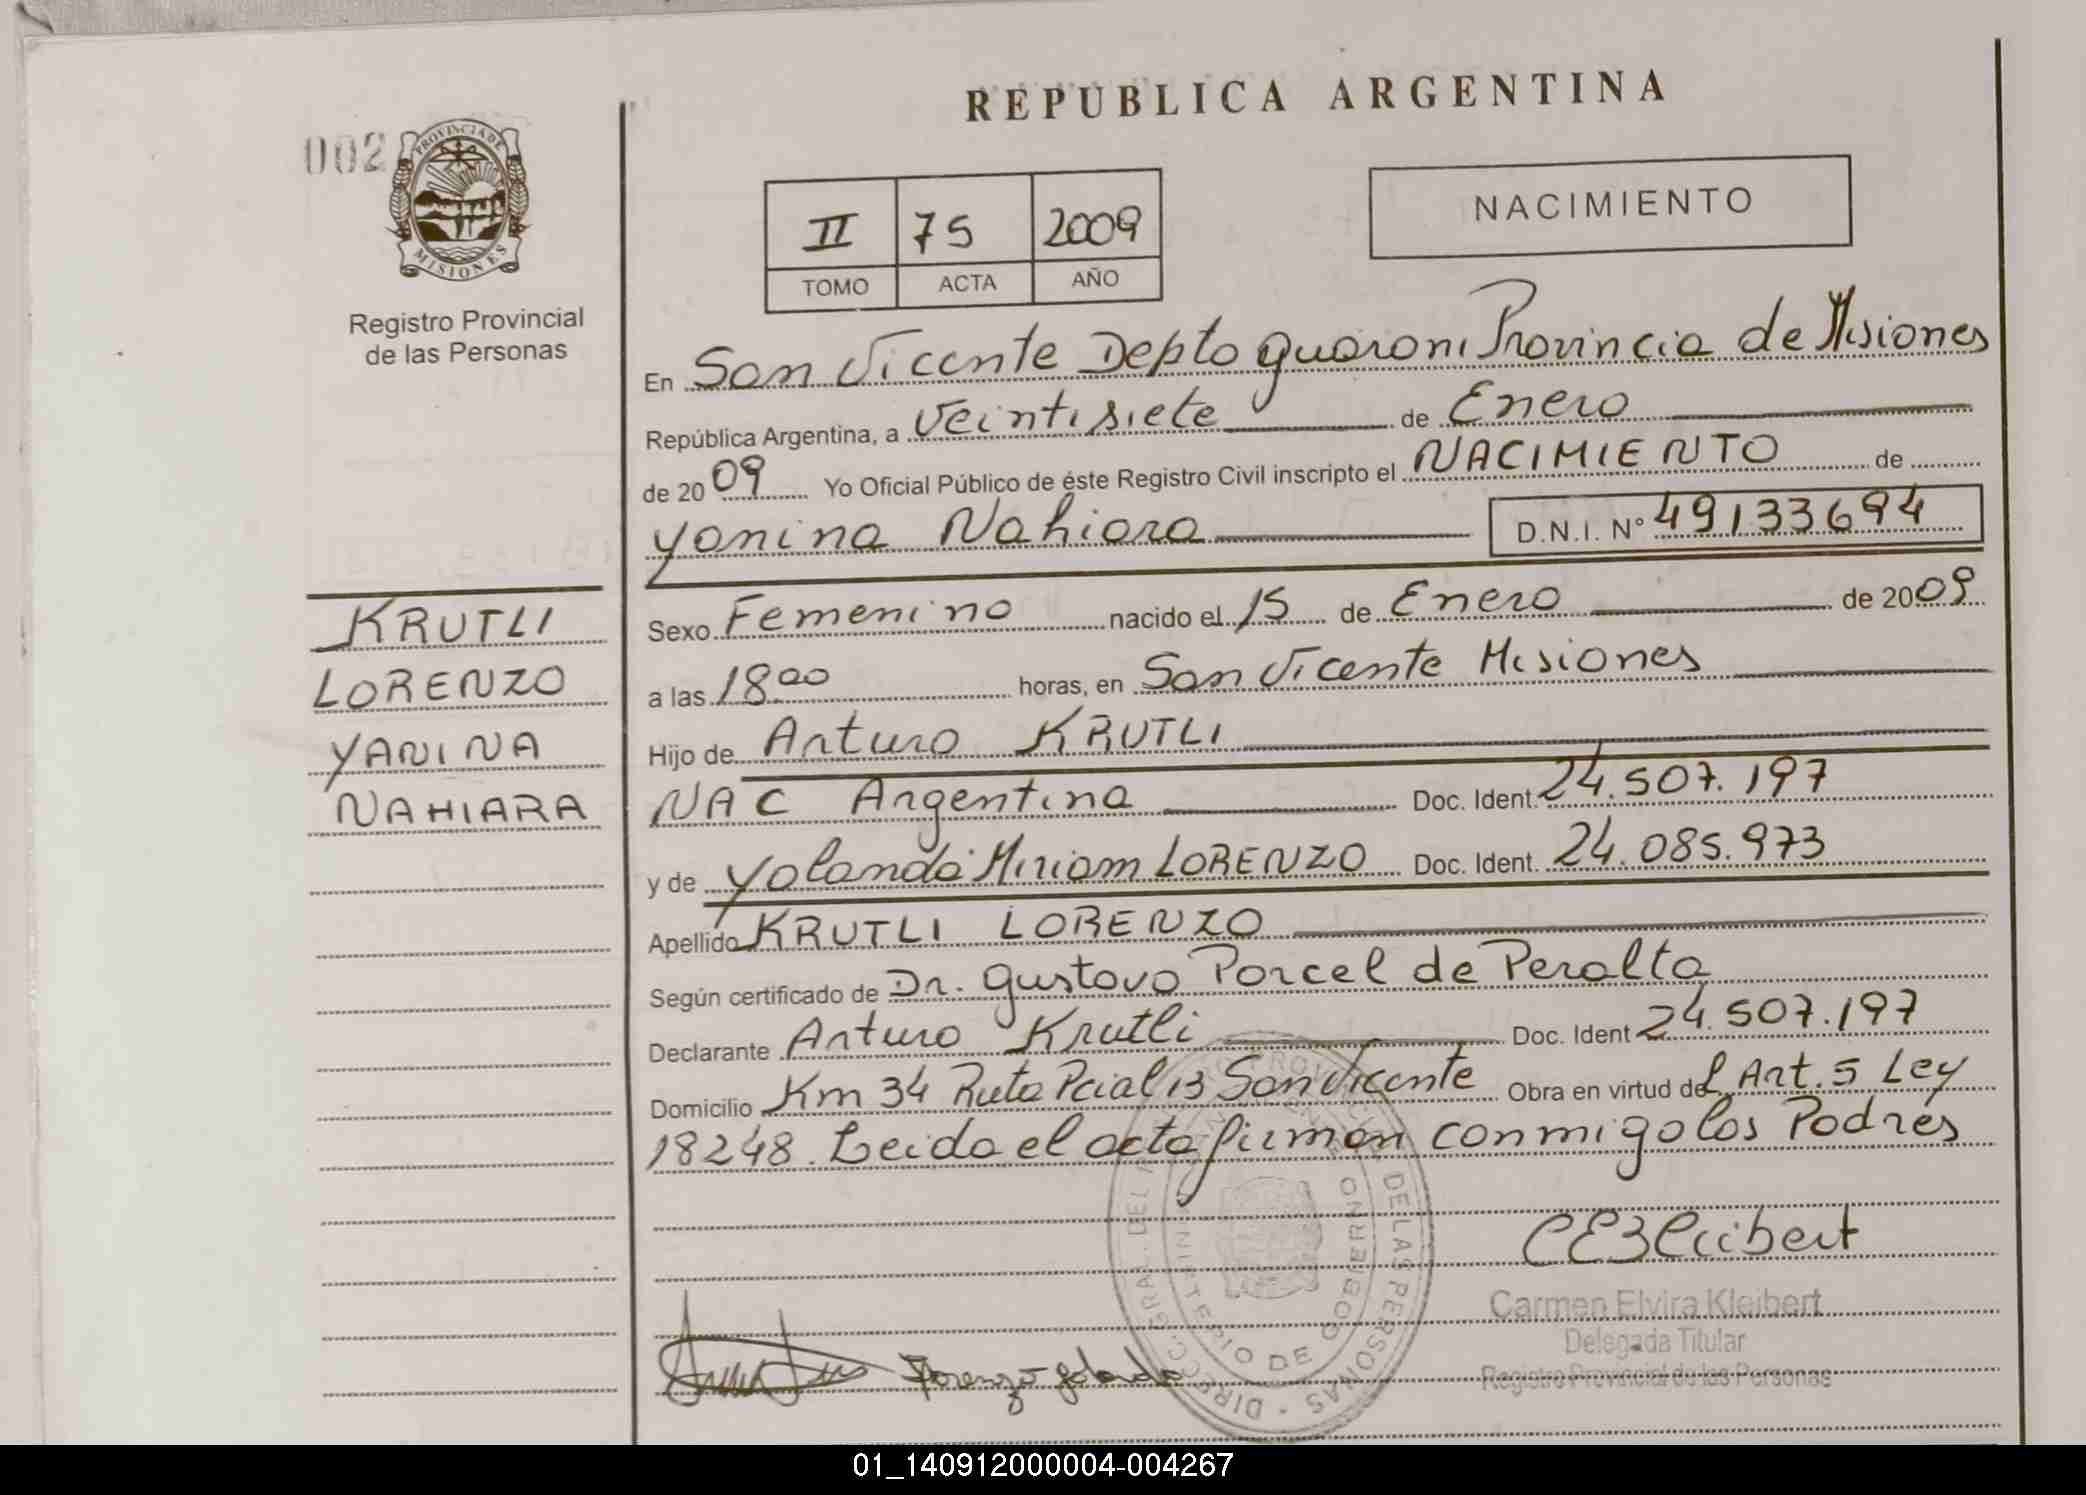 REPUBLICA ARGENTINA
002
PROVINCIA DE
MISIONES
Registro Provincial
de las Personas
II 75 2009
TOMO ACTA AÑO
NACIMIENTO
En San Vicente Depto Guarani Provincia de Misiones
República Argentina, a Veintisiete de Enero
de 2009 Yo Oficial Público de éste Registro Civil inscripto el NACIMIENTO de
Yanina Nahiara D.N.I. Nº 49133694
KRUTLI
LORENZO
YANINA
NAHIARA
Sexo Femenino nacido el 15 de Enero de 2009
a las 18 00 horas, en San Vicente Misiones
Hijo de Arturo KRUTLI
NAC Argentina Doc. Ident. 24.507.197
y de Yolanda Miriam LORENZO Doc. Ident. 24.085.973
Apellido KRUTLI LORENZO
Según certificado de Dr. Gustavo Porcel de Peralta
Declarante Arturo Krutli Doc. Ident 24.507.197
Domicilio Km 34 Ruta Pcial 13 San Vicente Obra en virtud del Art. 5 Ley
18248. Leida el acta firman conmigo los Padres
Carmen Elvira Kleibert
Delegada Titular
Registro Provincial de las Personas
Lorenzo Yolanda
MINISTERIO DE GOBIERNO
DE LAS PERSONAS - DIRECC. GRAL. DEL
01_140912000004-004267